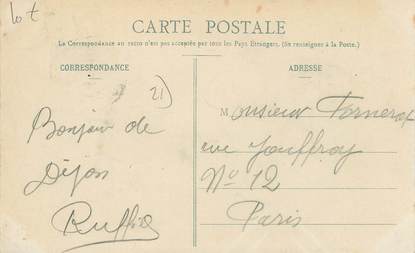 lot
CARTE POSTALE
La Correspondance au recto n'est pas acceptée par tous les Pays Etrangers. (Se renseigner à la Poste.)
CORRESPONDANCE
ADRESSE
21)
Bonjour de
Dijon
Ruffin
Monsieur Forneret
rue Jouffroy
No 12
Paris